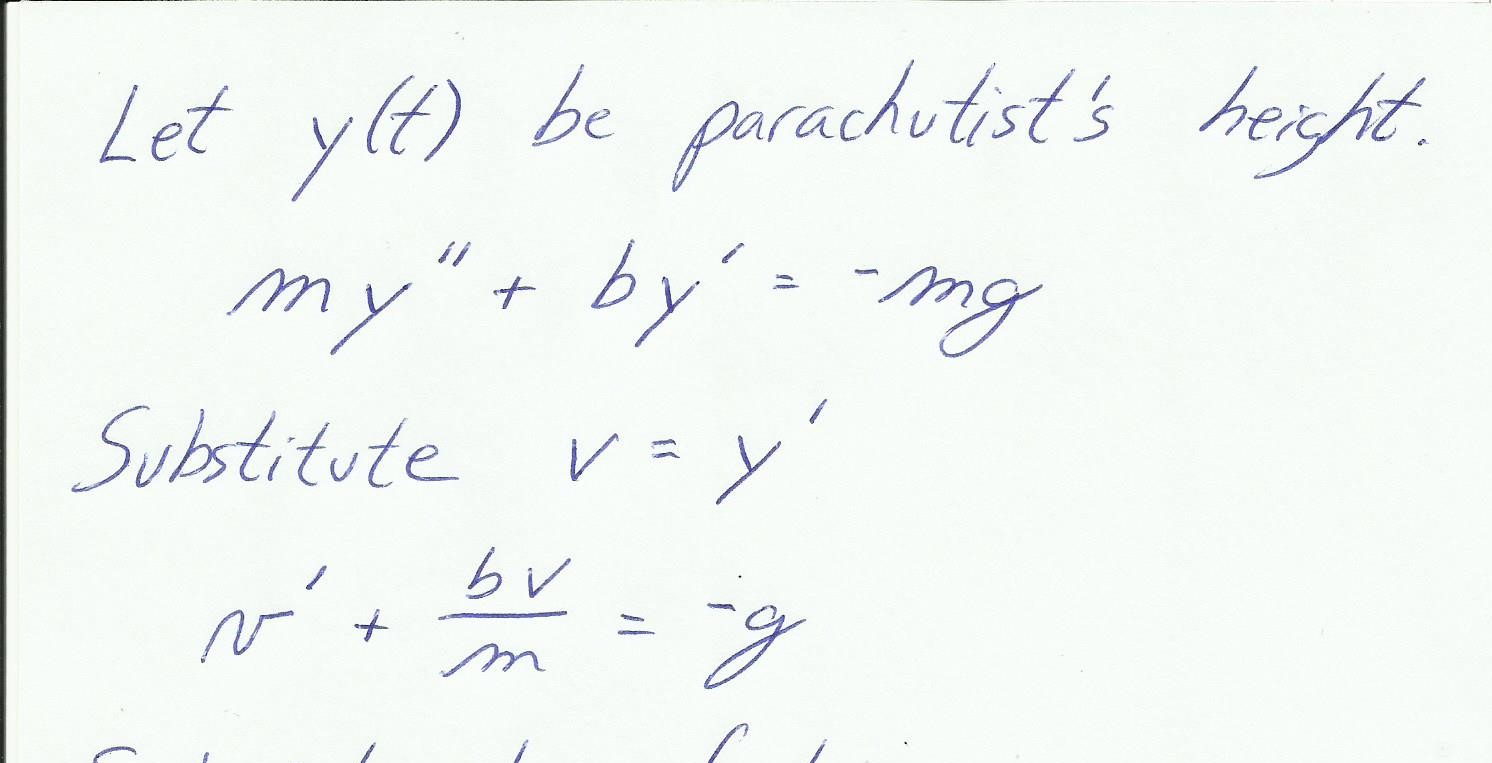 Let y(t) be parachutist's height.
my" + by' = -mg
Substitute v = y'
v' + bv/m = -g